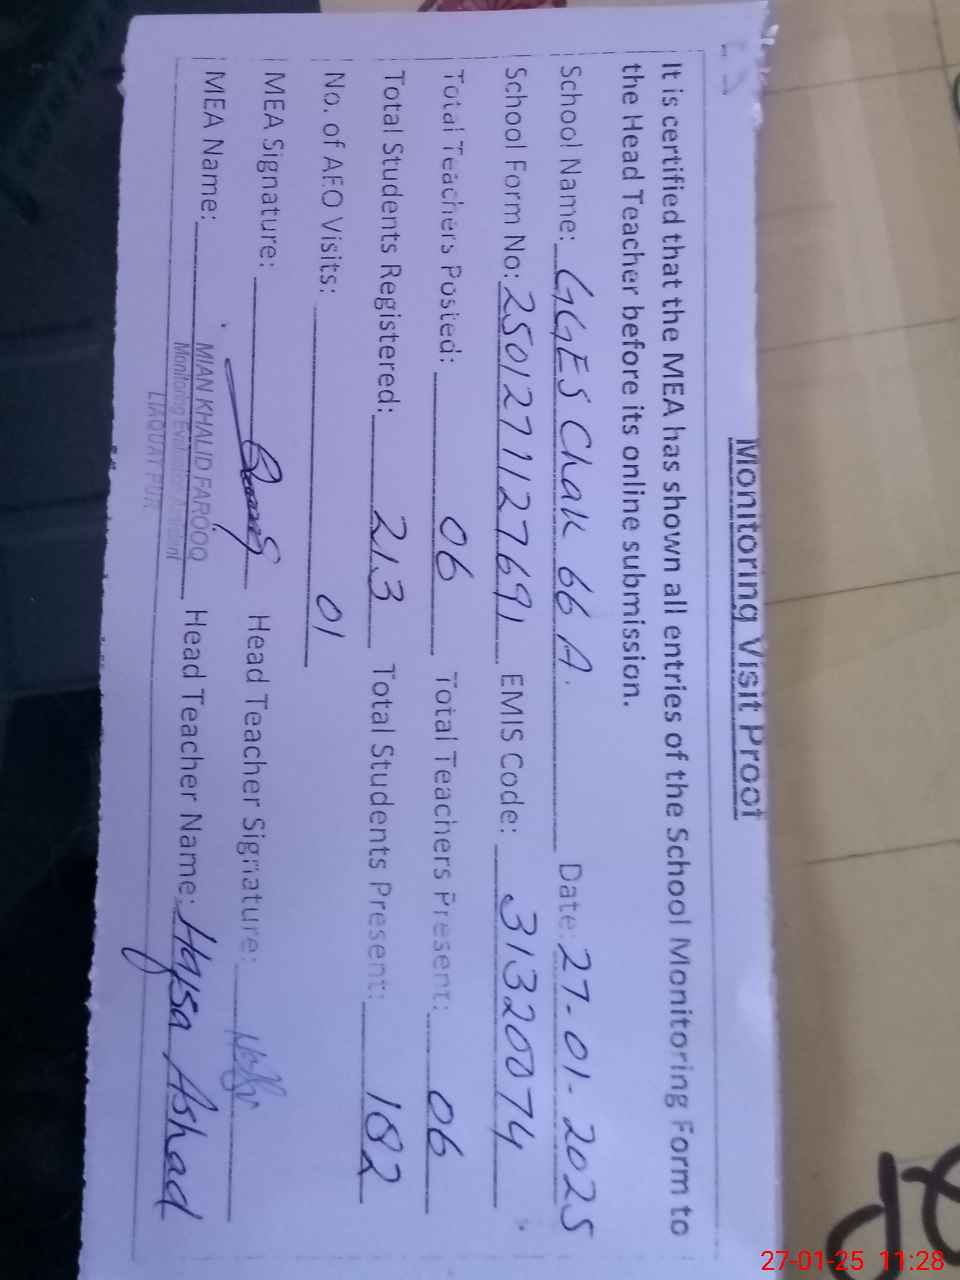 Monitoring Visit Proof
It is certified that the MEA has shown all entries of the School Monitoring Form to
the Head Teacher before its online submission.
School Name: GGES Chak 66 A. Date: 27-01-2025
School Form No: 25012711127691 EMIS Code: 31320074
Total Teachers Posted: 06 Total Teachers Present: 06
Total Students Registered: 213 Total Students Present: 182
No. of AEO Visits: 01
MEA Signature: Head Teacher Signature:
MEA Name: MIAN KHALID FAROOQ Head Teacher Name: Hafsa Ashad
Monitoring
LIAQUAT PUR
27-01-25 11:28